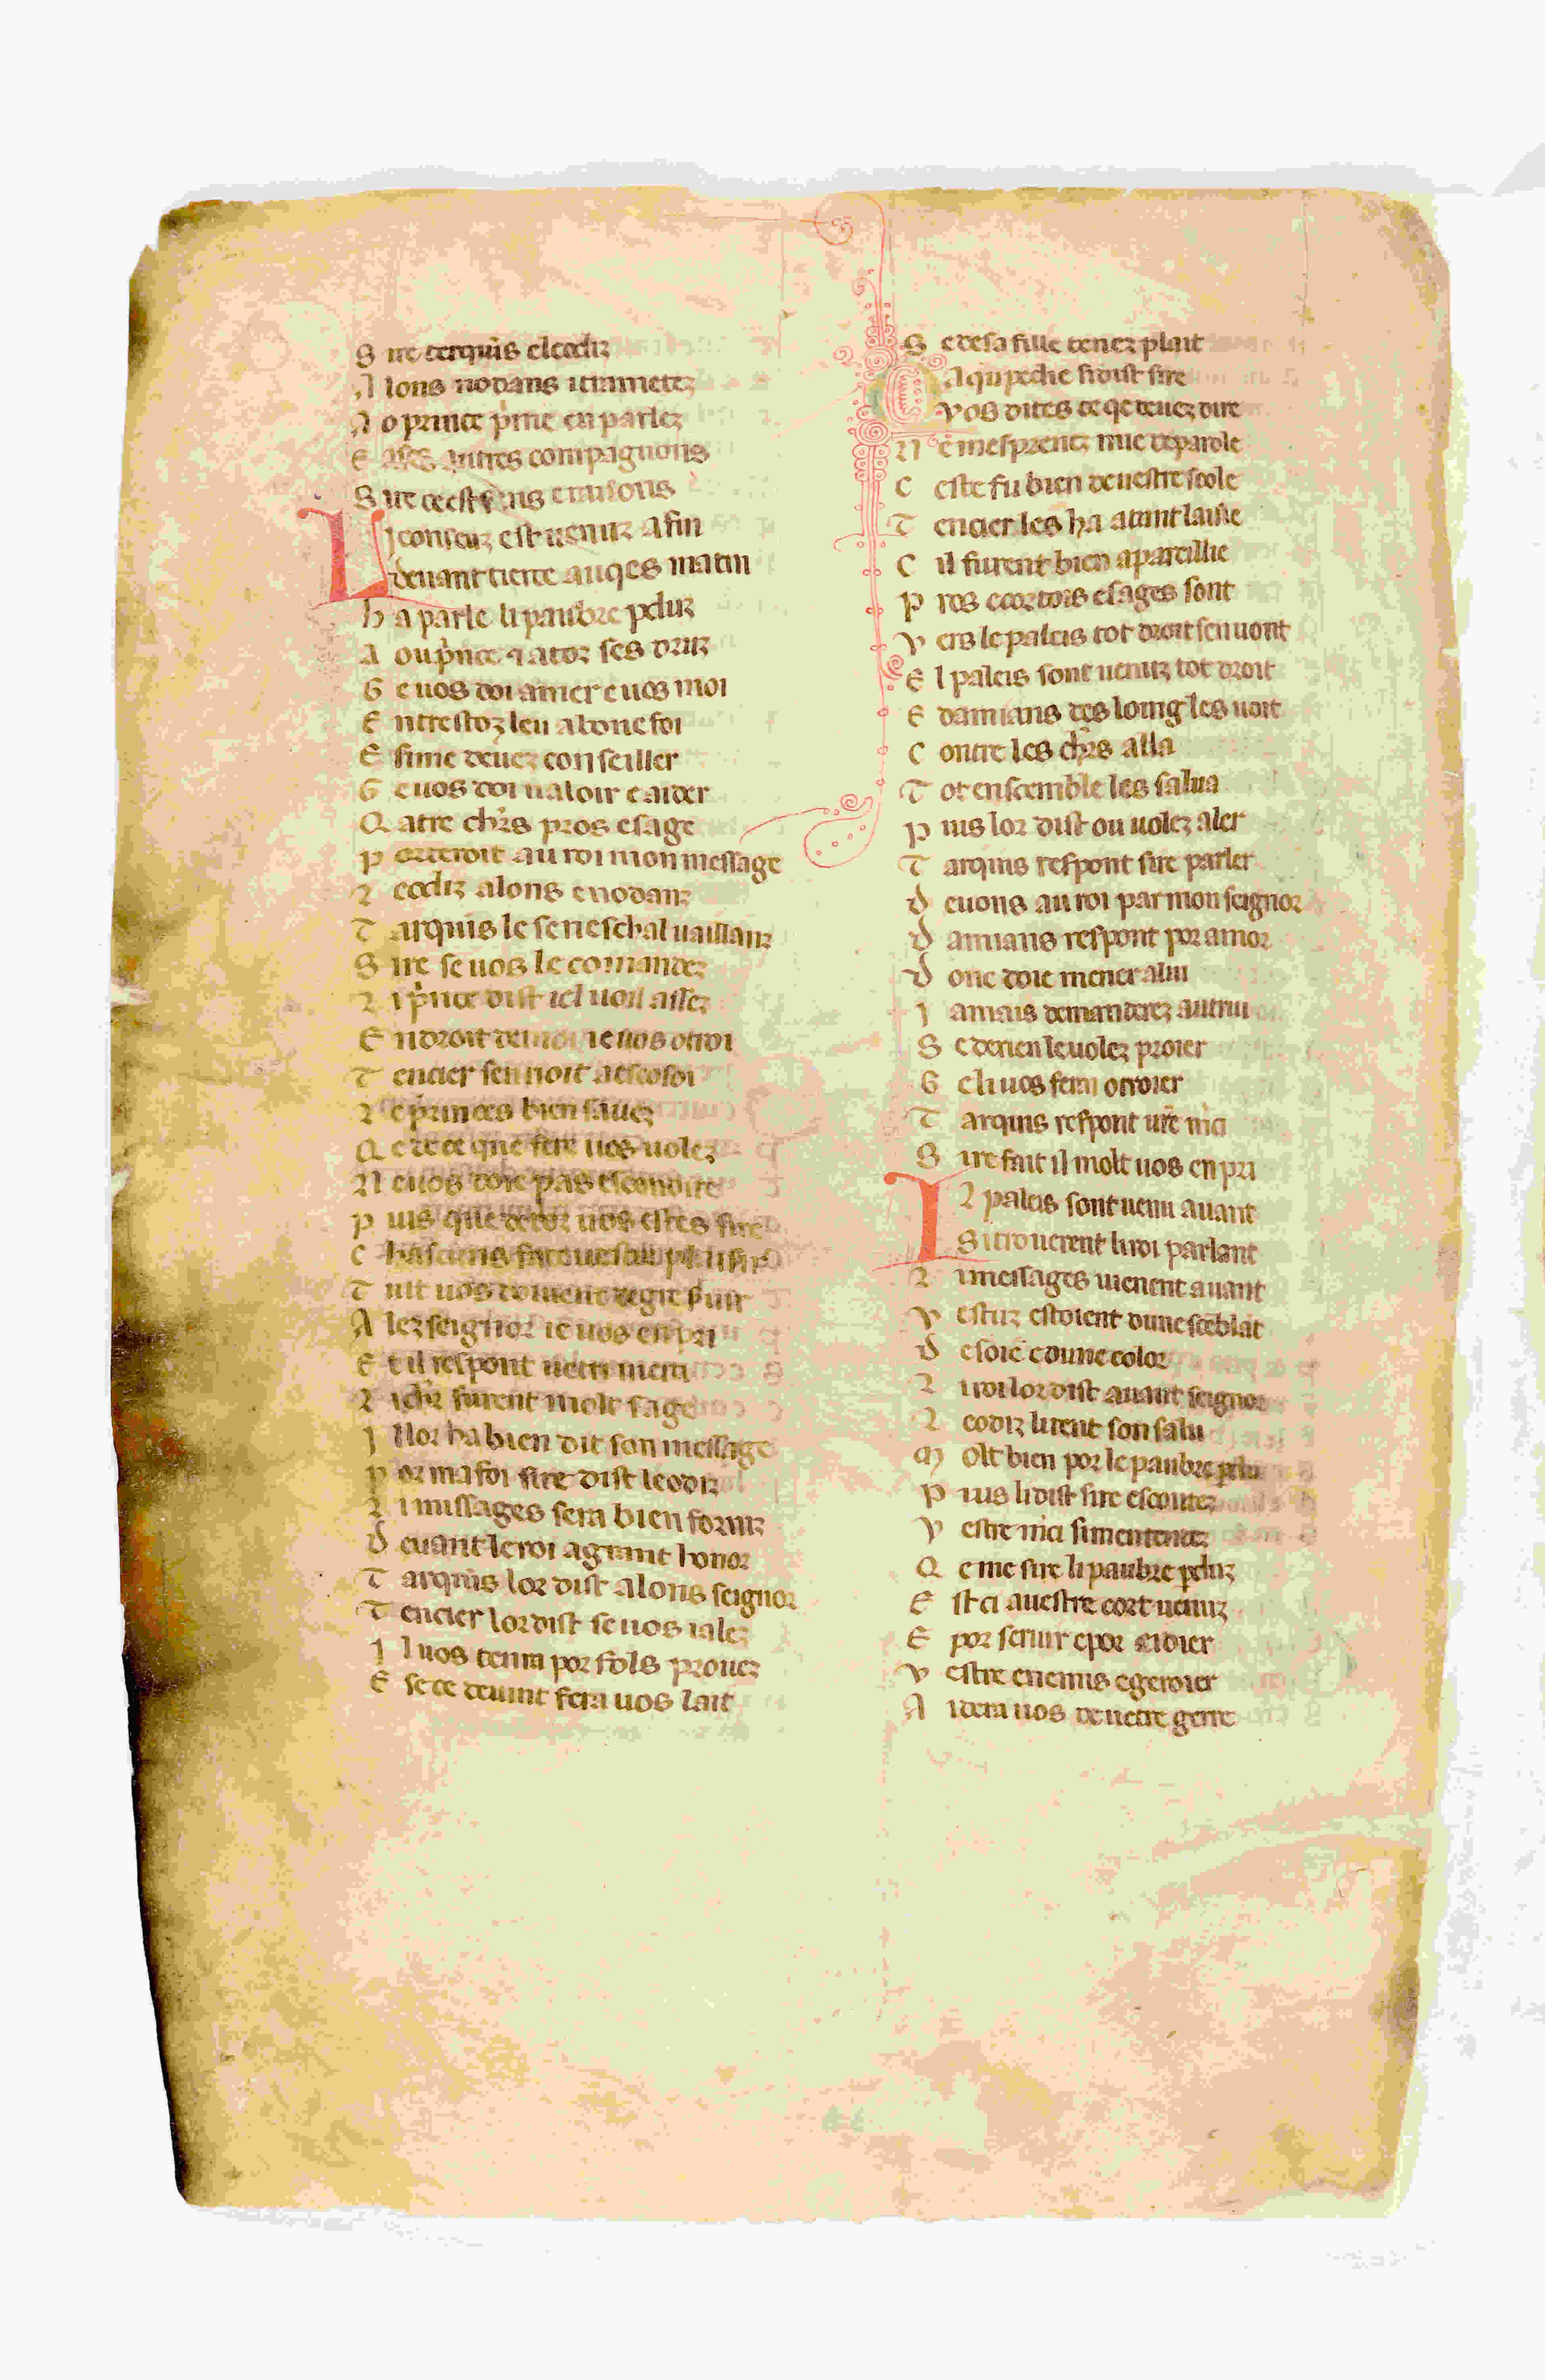 S ire tarquis e leodiz
A lons nodans itrametez
A o prince prime en parlez
E a ses autres compagnons
S ire ce est
L i conseuz est uenuz a fin
deuant tierce auqes matin
h a parle li paubre pduz
A ou prince ⁊ a toz ses druz
G e uos doi amer e uos moi
E ntrestoz leu a bone foi
E si me deuez conseiller
G e uos doi ualoir e aider
Q atre chrs pros e sage
P orteroit au roi mon message
L eodiz alons e nodanz
T arquis le seneschal uaillanz
S ire se uos le comandez
L i pnce dist icl uoil assez
E n droit de moi ie uos otroi
T encier sen uoit
L e princes bien sauez
Q e de ce que fere uos uolez
N e uos doie pas escondire
P uis que de toz nos estes sire
C hascuns
T uit uos
A lez seignor ie uos en pri
E t il respont uetri merci
L i chr furent molt sage
I l lor ha bien dit son message
P or ma foi sire dist leodiz
L i missages sera bien forniz
D euant le roi a grant honor
T arquis lor dist alons seignor
T encier lor dist se uos i alez
I l uos tenra por fols prouez
E se ce deuint fera uos lait
S e de sa fille tenez plait
C a qui peche si oist sire
vos dites ce qe deuez dire
N e mesprenez mie de parole
C este fu bien de uestre scole
T encier les ha atant laisie
C il furent bien apareillie
P ros e cortois e sages sont
V ers le paleis tot droit sen uont
E l paleis sont uenuz tot droit
E damians des loing les uoit
C ontre les chrs alla
T ot enscemble les salua
P uis lor dist ou uolez aler
T arquis respont sire parler
D euons au roi par mon seignor
D amians respont por amor
D one doie mener a lui
I amais demanderez autrui
S e de rien le uolez proier
G e li uos ferai otroier
T arquis respont ure mci
S ire fait il molt uos en pri
L 2 paleis sont uenu auant
Si trouerent li roi parlant
L i messages uienent auant
V estuz estoient dune scēblāt
D e soie e dune color
L i roi lor dist auant seignor
L eodiz li rent son salu
M olt bien por le paubre pdu
P uis li dist sire escoutez
V estre mci si mentendez
Q e me sire li paubre pduz
E st ci a uestre cort uenuz
E por seruir e por eidier
V estre enemis e geroier
A idera uos de uetre gerre